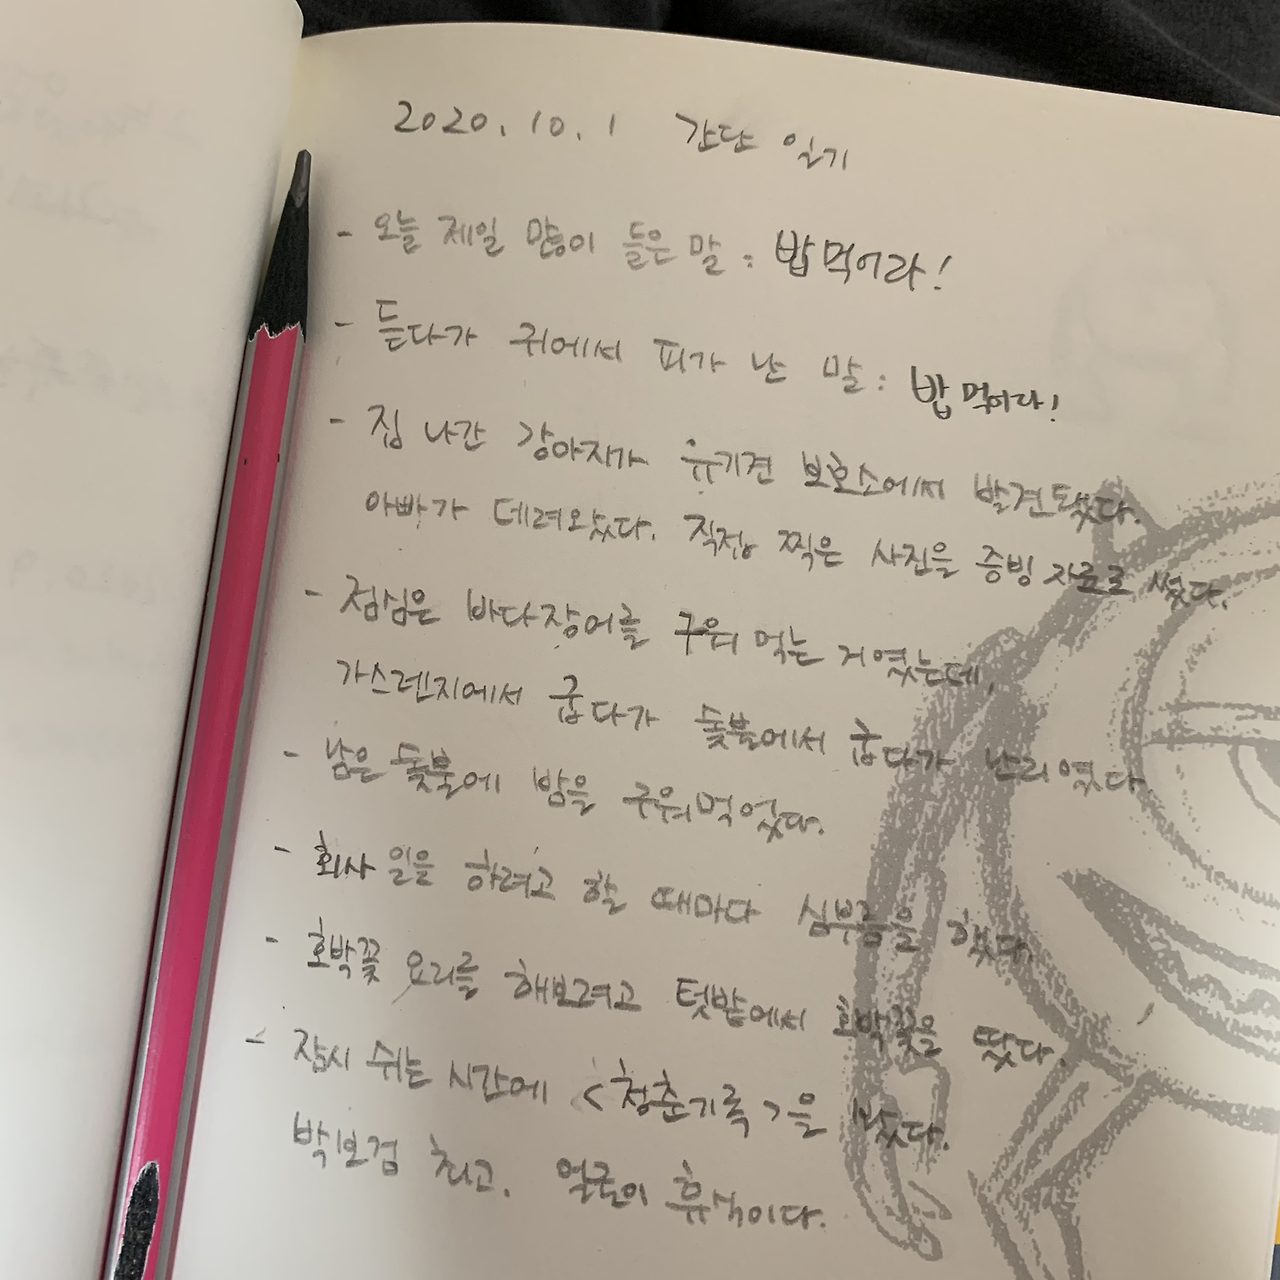 2020. 10. 1 간단 일기
- 오늘 제일 많이 들은 말 : 밥 먹어라!
- 듣다가 귀에서 피가 난 말 : 밥 먹어라!
- 집 나간 강아지가 유기견 보호소에서 발견됐다.
아빠가 데려왔다. 직전에 찍은 사진을 증빙 자료로 썼다.
- 점심은 바다장어를 구워 먹는 거였는데,
가스렌지에서 굽다가 숯불에서 굽다가 난리였다.
- 남은 숯불에 밤을 구워먹었다.
- 회사 일을 하려고 할 때마다 심부름을 했다.
- 호박꽃 요리를 해보려고 텃밭에서 호박꽃을 땄다.
- 잠시 쉬는 시간에 <청춘기록>을 봤다.
박보검 최고. 얼굴이 휴식이다.